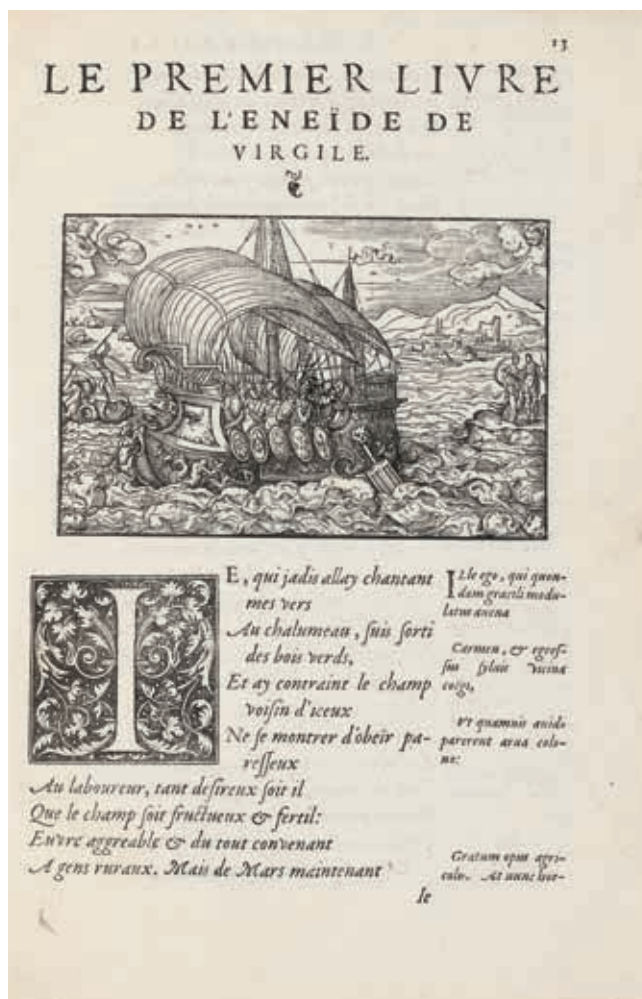 13
LE PREMIER LIVRE
DE L'ENEÏDE DE
VIRGILE.
IE, qui jadis allay chantant
mes vers
Au chalumeau, suis sorti
des bois verds,
Et ay contraint le champ
voisin d'iceux
Ne se montrer d'obeïr pa-
resseux
Au laboureur, tant desireux soit il
Que le champ soit fructueux & fertil:
Euvre aggreable & du tout convenant
A gens ruraux. Mais de Mars maintenant
le
ILle ego, qui quon-
dam gracili modu-
latus auena
Carmen, & egres-
sus syluis vicina
coëgi,
Vt quamuis auido
parerent arua colo-
no:
Gratum opus agri-
colis. At nunc hor-